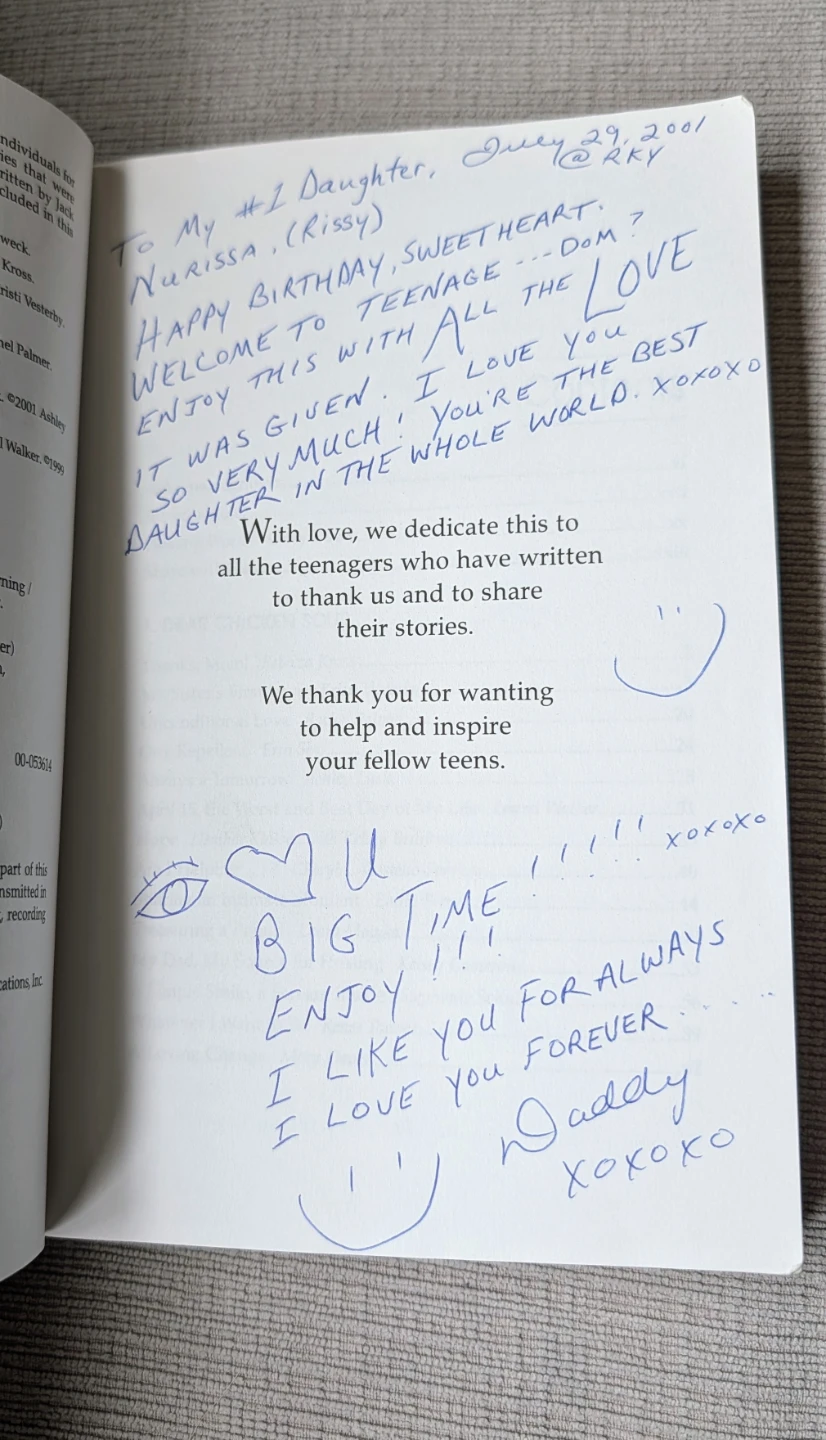 ndividuals for
ies that were
ritten by Jack
cluded in this
weck.
Kross.
risti Vesterby.
nel Palmer.
©2001 Ashley
l Walker. ©1999
ning /
er)
00-053614
part of this
nsmitted in
, recording
cations, Inc
July 29, 2001
@ RKY
To My #1 Daughter,
NURISSA, (Rissy)
HAPPY BIRTHDAY, SWEETHEART.
WELCOME TO TEENAGE ... DOM?
ENJOY THIS WITH ALL THE LOVE
IT WAS GIVEN. I LOVE YOU
SO VERY MUCH! YOU'RE THE BEST
DAUGHTER IN THE WHOLE WORLD. XOXOXO
With love, we dedicate this to
all the teenagers who have written
to thank us and to share
their stories.
We thank you for wanting
to help and inspire
your fellow teens.
U
BIG TIME !!!!!! XOXOXO
ENJOY !!!
I LIKE YOU FOR ALWAYS
I LOVE YOU FOREVER......
Daddy
XOXOXO